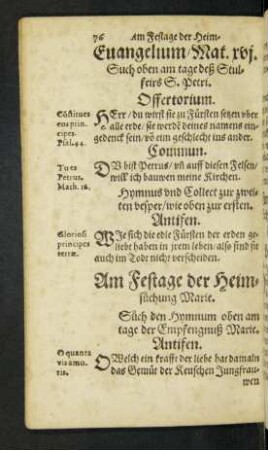 76 Am Festage der Heim-
Euangelium/Mat. xvj.
Such oben am tage deß Stul-
feirs S. Petri.
Offertorium.
Cōstitues
eos prin-
cipes.
Psal. 44.
HErr/du wirst sie zu Fürsten setzen vber
alle erde/sie werdē deines namens ein-
gedenck sein/vō eim geschlecht ins ander.
Commun.
Tu es
Petrus.
Math. 16.
DV bist Petrus/vñ auff diesen Felsen/
will ich bauwen meine Kirchen.
Hymnus vnd Collect zur zwei-
ten vesper/wie oben zur ersten.
Antifen.
Gloriosi
principes
terræ.
WJe sich die edle Fürsten der erden ge-
liebe haben in jrem leben/also sind sie
auch im Todt nicht verscheiden.
Am Festage der Heim-
süchung Marie.
Süch den Hymnum oben am
tage der Empfengnuß Marie.
Antifen.
O quanta
vis amo-
ris.
O Welch ein krafft der liebe hat damaln
das Gemüt der Keuschen Jungfrau-
wen